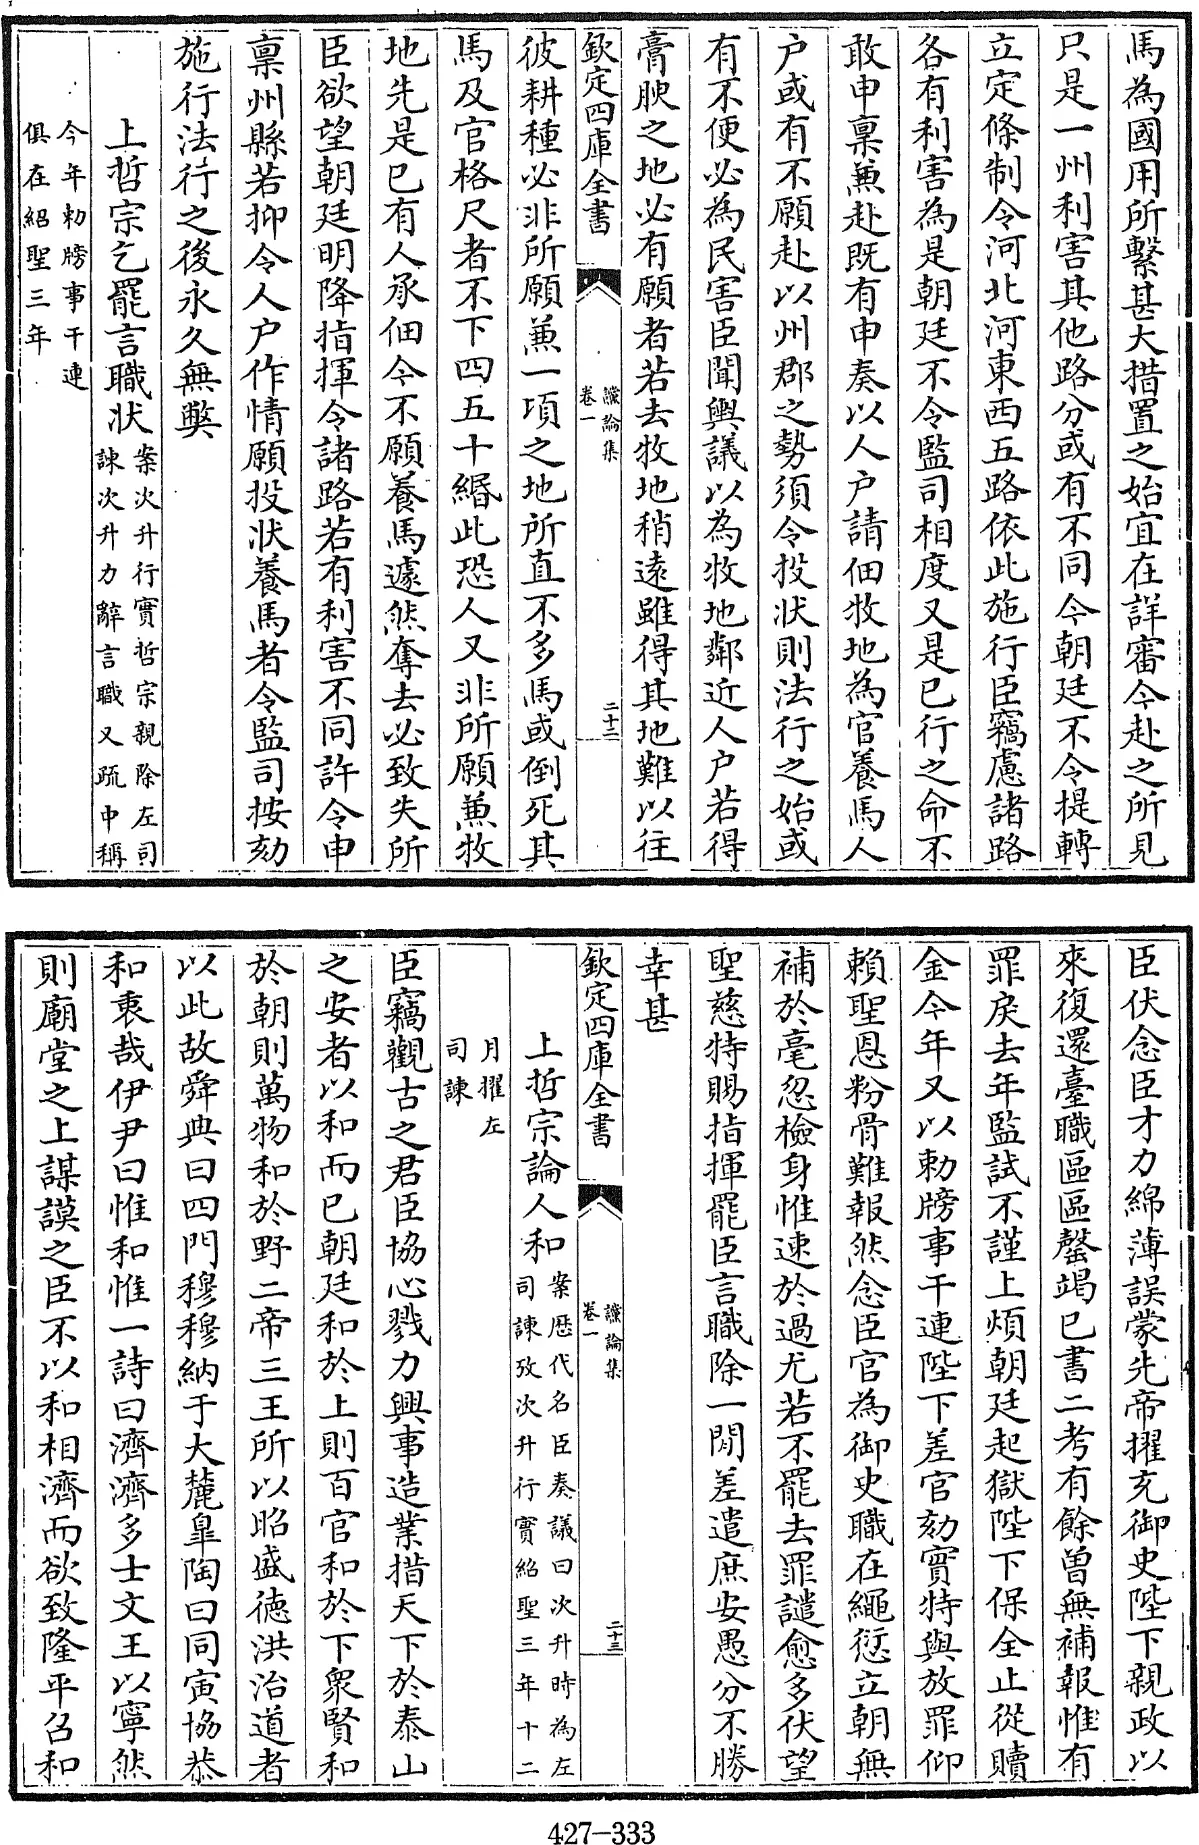 馬為國用所繫甚大措置之始宜在詳審今赴之所見
只是一州利害其他路分或有不同今朝廷不令提轉
立定條制令河北河東西五路依此施行臣竊慮諸路
各有利害為是朝廷不令監司相度又是已行之命不
敢申稟兼赴既有申奏以人户請佃牧地為官養馬人
户或有不願赴以州郡之勢須令投状則法行之始或
有不便必為民害臣聞輿議以為牧地鄰近人户若得
膏腴之地必有願者若去牧地稍遠雖得其地難以往
欽定四庫全書
讜論集
卷一
二十二
彼耕種必非所願兼一項之地所直不多馬或倒死其
馬及官格尺者不下四五十緡此恐人又非所願兼牧
地先是已有人承佃今不願養馬遽然奪去必致失所
臣欲望朝廷明降指揮令諸路若有利害不同許令申
稟州縣若抑令人户作情願投狀養馬者令監司按劾
施行法行之後永久無弊
上哲宗乞罷言職状
案次升行實哲宗親除左司
諫次升力辭言職又疏中稱
今年勅牓事干連
俱在紹聖三年
臣伏念臣才力綿薄誤蒙先帝擢充御史陛下親政以
來復還臺職區區罄竭已書二考有餘曽無補報惟有
罪戾去年監試不謹上煩朝廷起獄陛下保全止從贖
金今年又以勅牓事干連陛下差官劾實特與放罪仰
賴聖恩粉骨難報然念臣官為御史職在繩愆立朝無
補於毫忽檢身惟速於過尤若不罷去罪譴愈多伏望
聖慈特賜指揮罷臣言職除一閒差遣庶安愚分不勝
幸甚
欽定四庫全書
讜論集
卷一
二十三
上哲宗論人和
案歴代名臣奏議曰次升時為左
司諫攷次升行實紹聖三年十二
月擢左
司諫
臣竊觀古之君臣協心戮力興事造業措天下於泰山
之安者以和而已朝廷和於上則百官和於下衆賢和
於朝則萬物和於野二帝三王所以昭盛德洪治道者
以此故舜典曰四門穆穆納于大麓臯陶曰同寅協恭
和衷哉伊尹曰惟和惟一詩曰濟濟多士文王以寧然
則廟堂之上謀謨之臣不以和相濟而欲致隆平召和
427-333